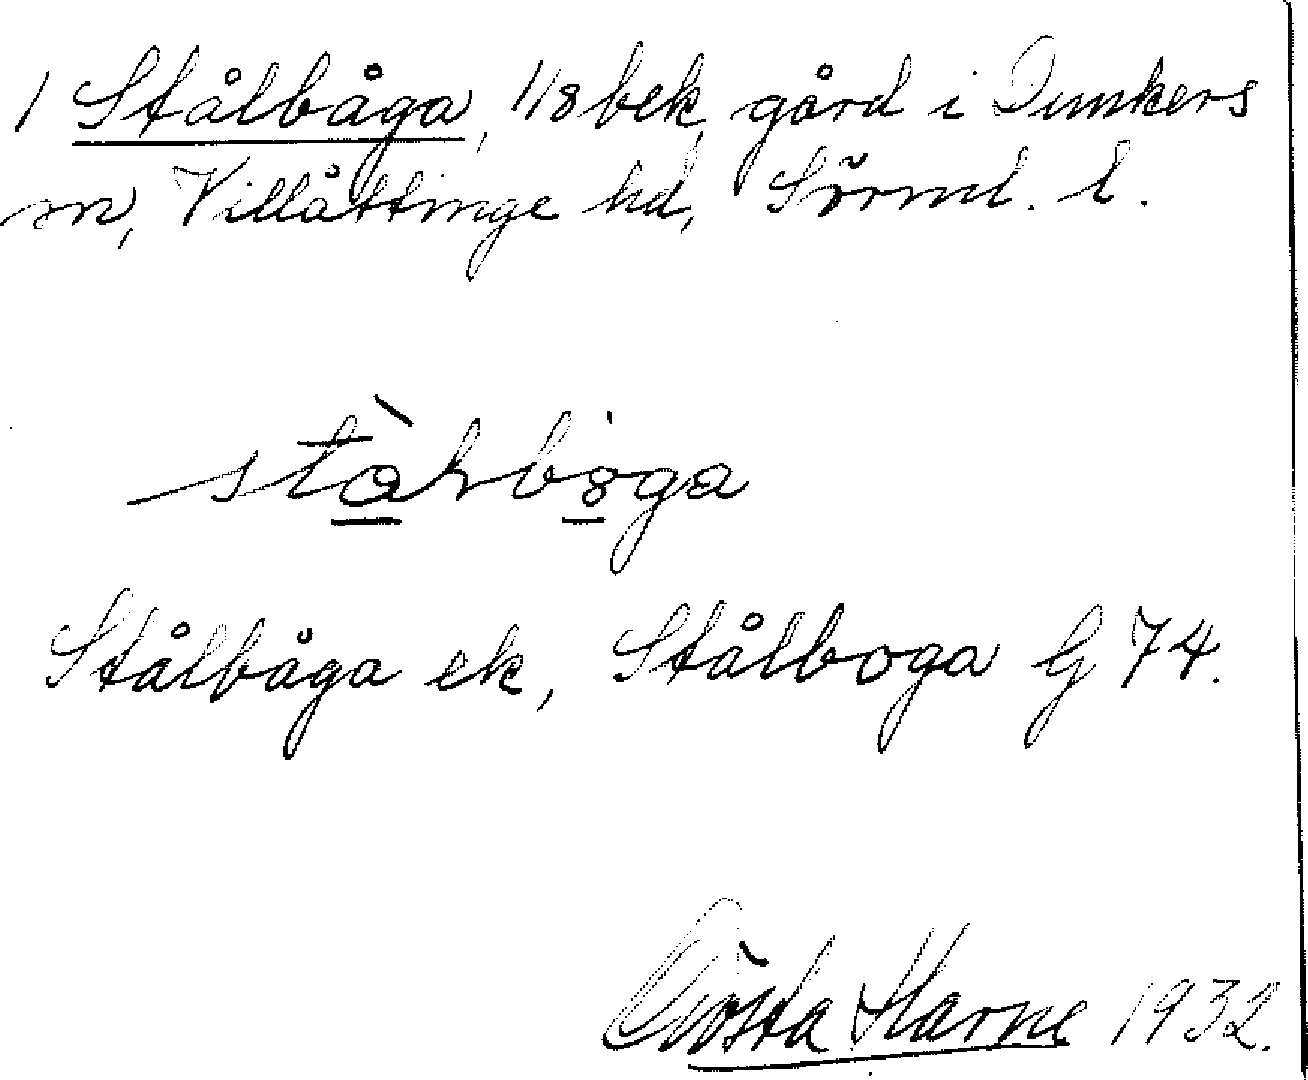 1 Stålbåga, 1/8 bek, gård i Dunkers
sn, Villåttinge hd, Sörml. l.
Stålbåga ek, Stålboga G 74.
Gösta Harne 1932.